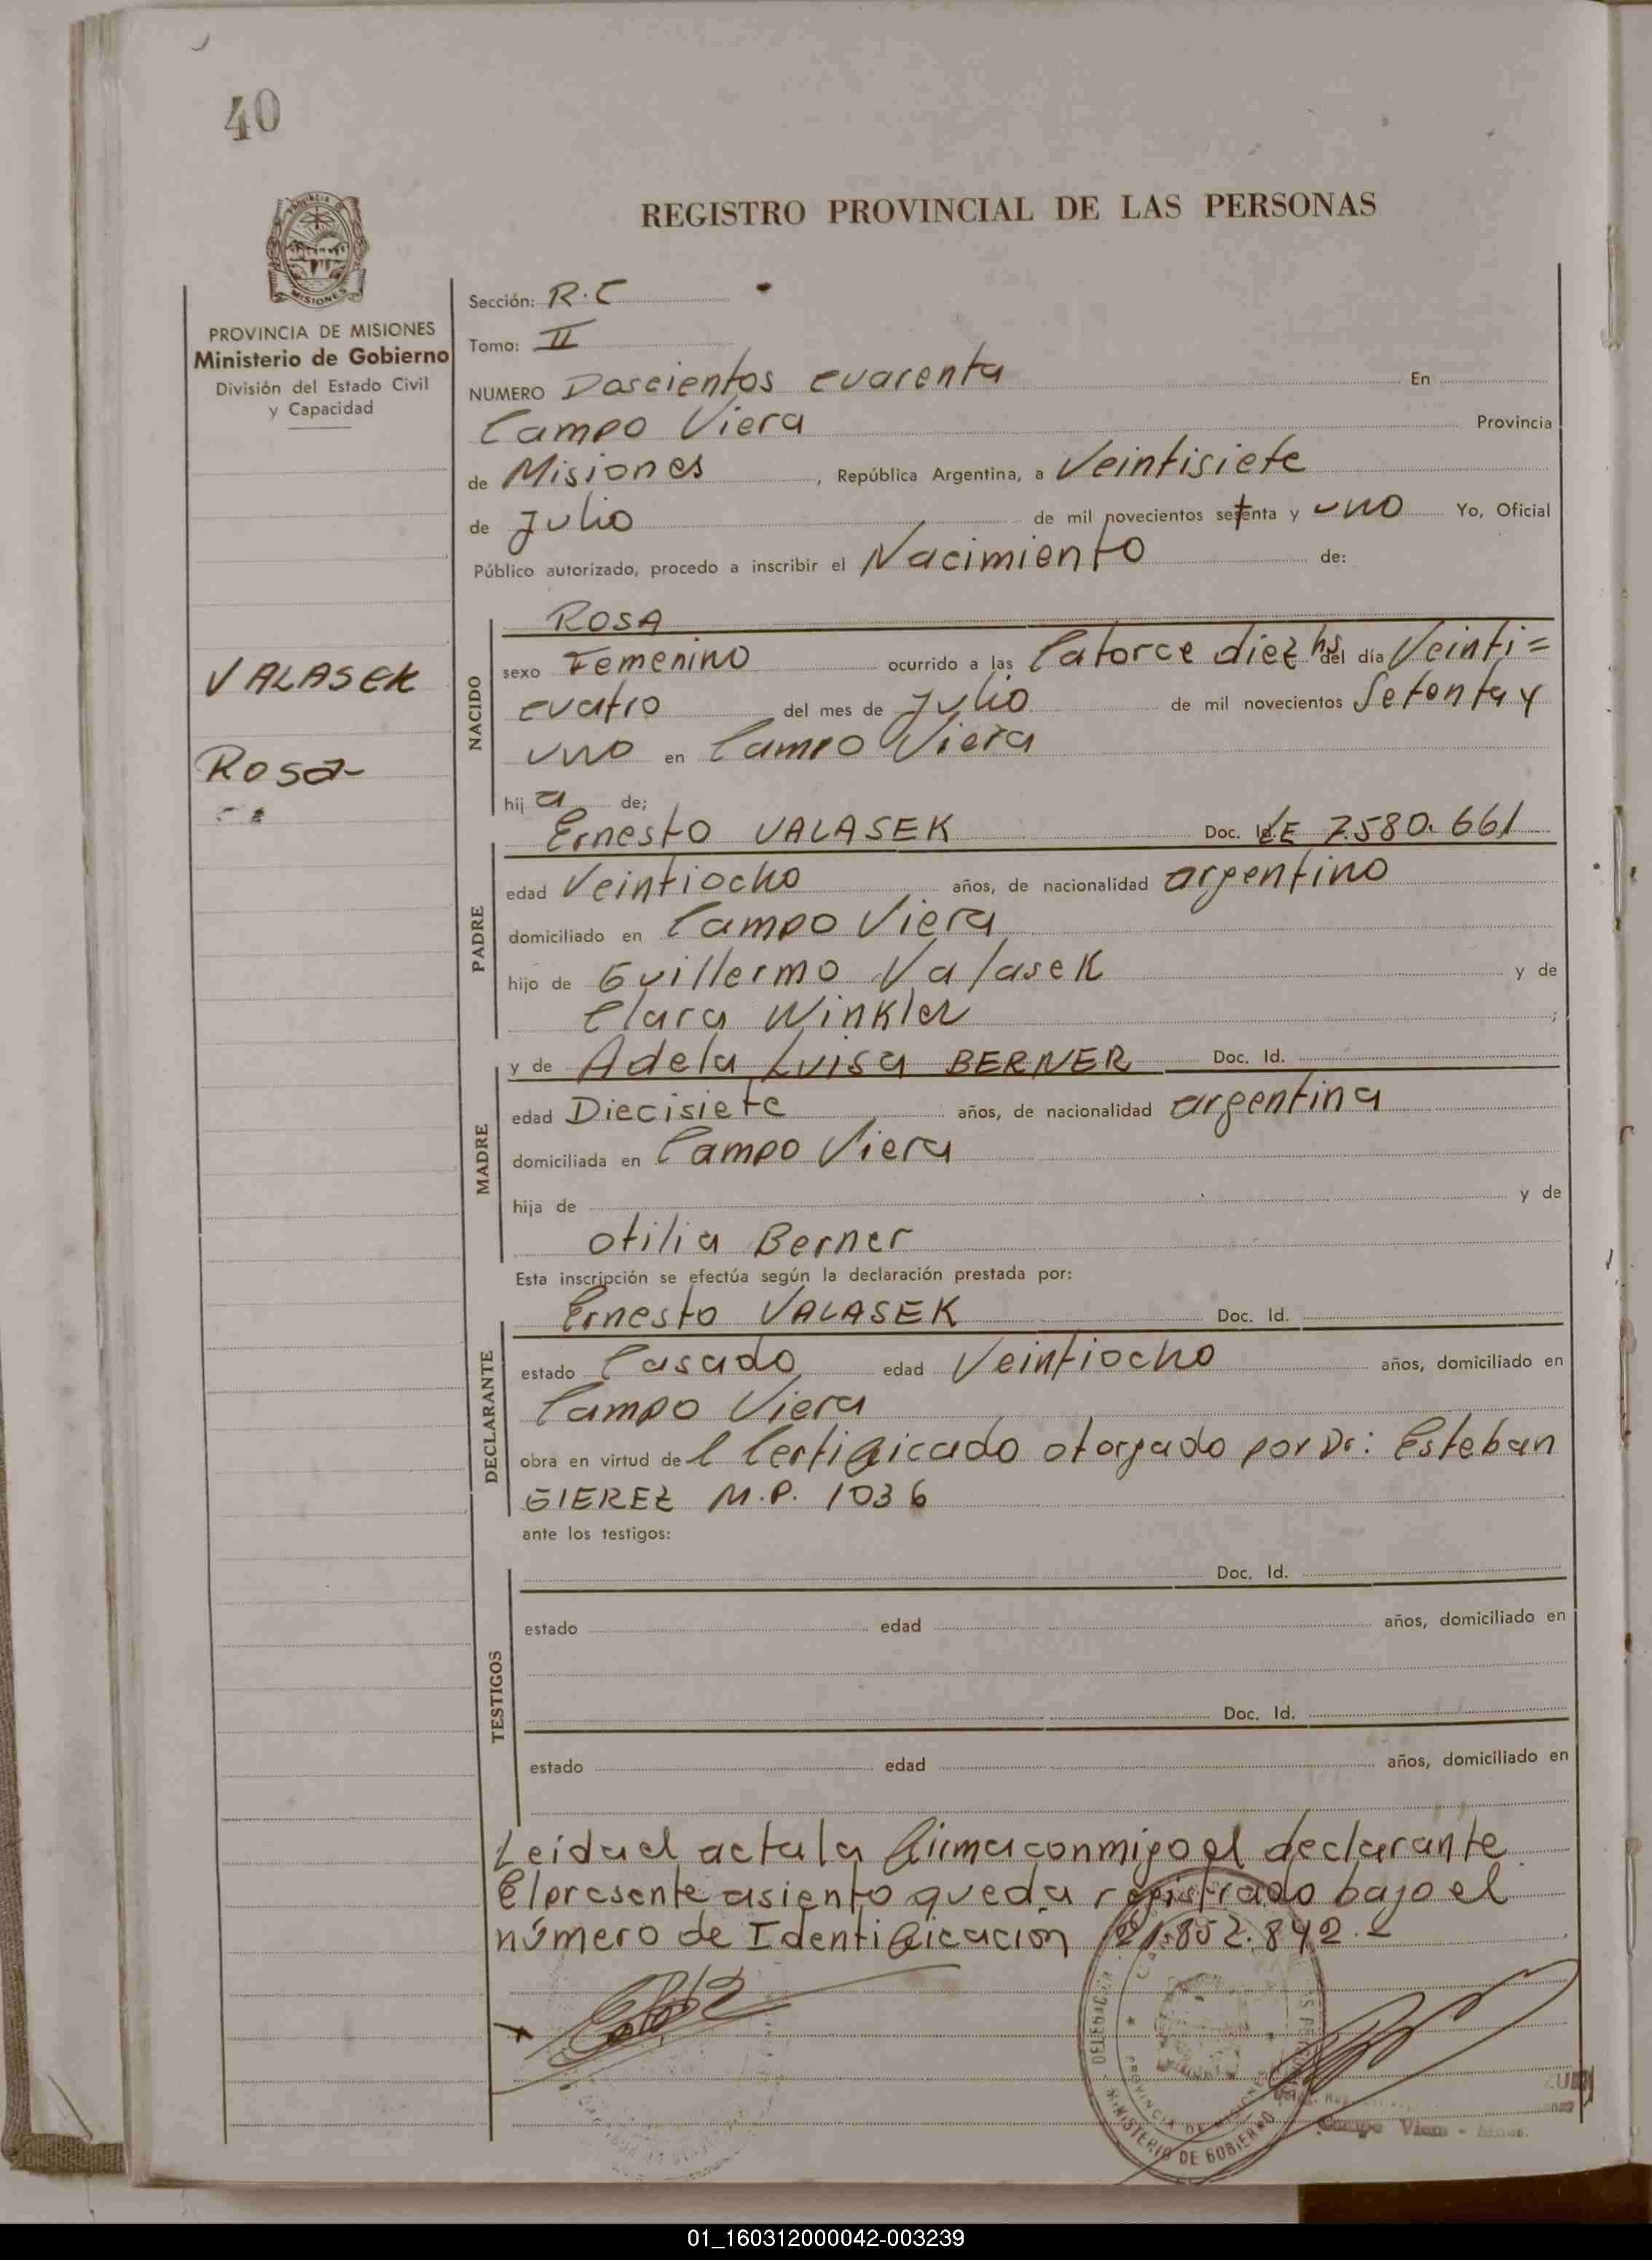 40
REGISTRO PROVINCIAL DE LAS PERSONAS
MISIONES
PROVINCIA DE MISIONES
Ministerio de Gobierno
División del Estado Civil
y Capacidad
Sección: R.C
Tomo: II
NUMERO Doscientos cuarenta En
Campo Viera Provincia
de Misiones, República Argentina, a Veintisiete
de Julio de mil novecientos setenta y uno Yo, Oficial
Público autorizado, procedo a inscribir el Nacimiento de:
VALASEK
Rosa-
NACIDO
ROSA
sexo Femenino ocurrido a las Catorce diez hs del día Veinti=
cuatro del mes de Julio de mil novecientos Setenta y
uno en Campo Viera
hija de;
PADRE
Ernesto VALASEK Doc. Id. LE 7.580.661
edad Veintiocho años, de nacionalidad argentino
domiciliado en Campo Viera
hijo de Guillermo Valasek y de
Clara Winkler ;
MADRE
y de Adela Luisa BERNER Doc. Id.
edad Diecisiete años, de nacionalidad argentina
domiciliada en Campo Viera
hija de y de
Otilia Berner
Esta inscripción se efectúa según la declaración prestada por:
DECLARANTE
Ernesto VALASEK Doc. Id.
estado Casado edad Veintiocho años, domiciliado en
Campo Viera
obra en virtud del Certificado otorgado por Dr: Esteban
GIEREZ M.P. 1036
ante los testigos:
TESTIGOS
Doc. Id.
estado edad años, domiciliado en
Doc. Id.
estado edad años, domiciliado en
Leida el acta la firma conmigo el declarante
El presente asiento queda registrado bajo el
número de Identificación 21.852.842.-
DELEGACION
MINISTERIO DE GOBIERNO
PROVINCIA DE MISIONES
Campo Viera - Mnes.
01_160312000042-003239